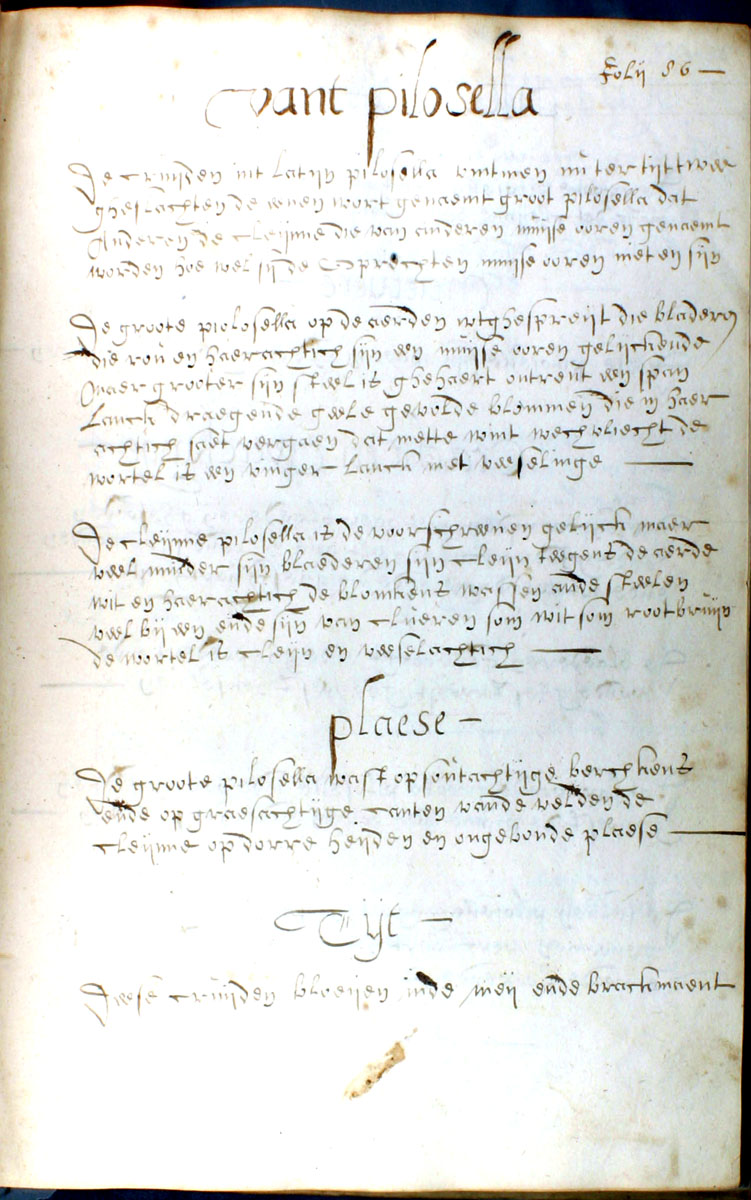 Folij 86
Vant pilosella
De cruijden int latijn pilosella vintmen nu ter tijt twee
gheslachten de eenen wort genaemt groot pilosella dat
Anderen de cleijnne die van anderen muijse ooren genaemt
worden hoe wel sij de oprechten muijse ooren niet en sijn
De groote piolosella op de aerden wtghespreijt die bladeren
die rou en haerachtich sijn een muijse ooren gelijckende
Maer grooter sijn steel is ghehaert ontrent een span
lanck draegende geele gevolde blommen die in haer
achtich saet vergaen dat mette wint wech vliecht de
wortel is een vinger lanck met veeselinge
De cleijnne pilosella is de voorschreeuen gelijck maer
veel minder sijn blaederen sijn cleijn tegens de aerde
wit en haerachtich de blomkens wassen ande steelen
veel bij een ende sijn van clueren som wit som rootbruijn
de wortel is cleijn en veeselachtich
plaese
De groote pilosella wast op sontachtijge berchkens
ende op graesachtijge canten vande velden de
cleijnne op dorre heijden en ongebonde plaese
Tijt
Deese cruijden bloeijen inde meij ende brackmaent